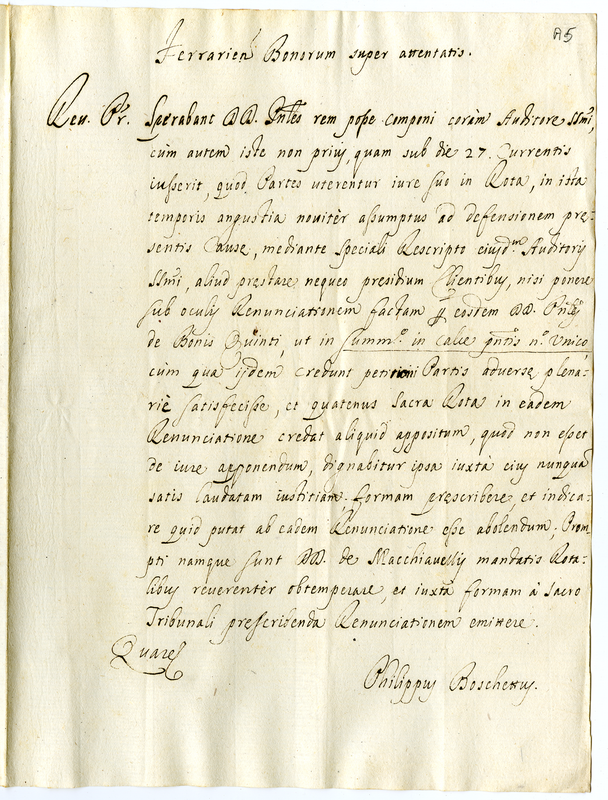 A5
Ferrarien̄ Bonorum super attentatis.
Rev. Pr. Sperabant DD. Pntes rem posse componi coràm Auditore SSmi,
cùm autem iste non prius, quam sub die 27. Currentis
iusserit, quod Partes uterentur iure suo in Rota, in ista
temporis angustia novitèr assumptus ad defensionem pre-
sentis Cause, mediante speciali Rescripto eiusdm Auditoris
SSmi, aliud prestare nequeo presidium Clientibus, nisi ponere
sub oculis Renunciationem factam p eosdem DD. Pntes
de Bonis Quinti, ut in Summo. in calce pntis no. Unico
cùm qua ijdem credunt petitioni Partis adverse plena-
riè satisfecisse, et quatenus Sacra Rota in eadem
Renunciatione credat aliquid appositum, quod non esset
de iure apponendum, dignabitur ipsa iuxtà eius nunquà
satis laudatam iustitiam formam prescribere, et indica-
re quid putat ab eadem Renunciatione esse abolendum; Prom
pti namque sunt DD. de Macchiavellis mandatis Rota-
libus reverentèr obtemperare, et iuxtà formam à Sacro
Tribunali prescribenda Renunciationem emittere.
Quare
Philippus Boschettus.